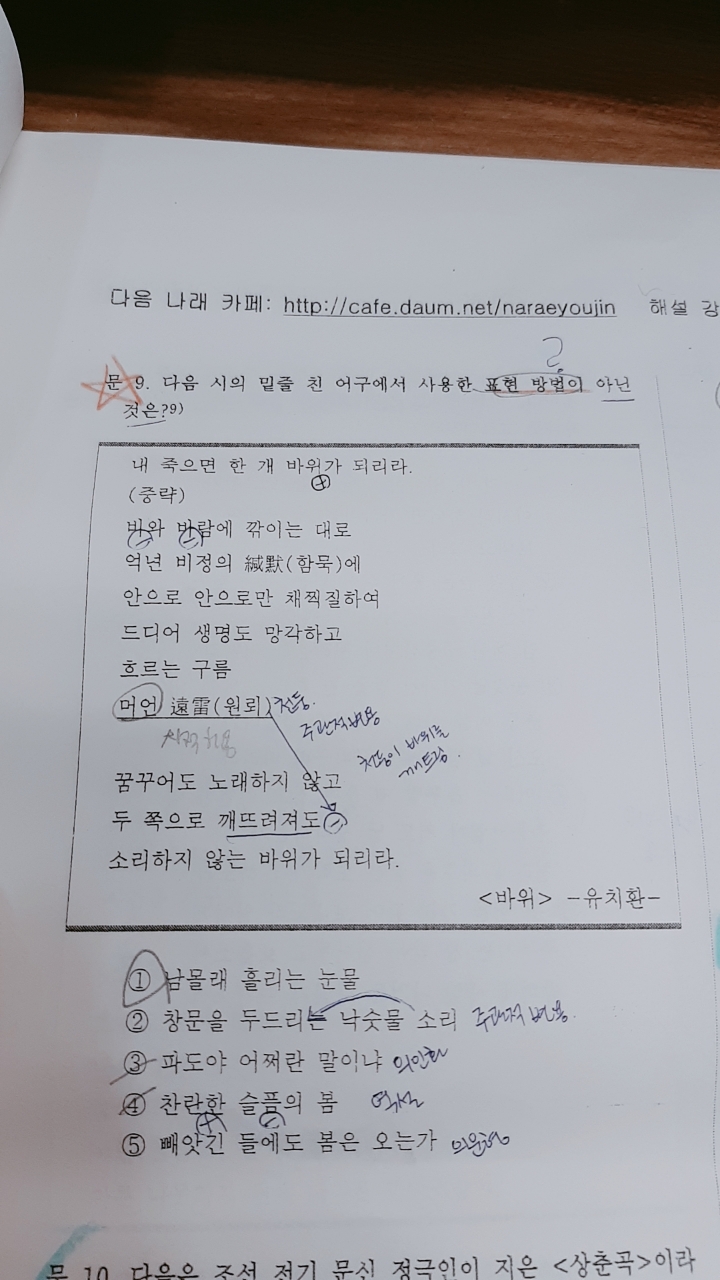 다음 나래 카페: http://cafe.daum.net/naraeyoujin 해설 강
?
문 9. 다음 시의 밑줄 친 어구에서 사용한 표현 방법이 아닌
것은?9)
내 죽으면 한 개 바위가 되리라.
(중략)
비와 바람에 깎이는 대로
억년 비정의 緘默(함묵)에
안으로 안으로만 채찍질하여
드디어 생명도 망각하고
흐르는 구름
머언 遠雷(원뢰) 천둥.
주관적 변용
시적허용
천둥이 바위를
깨트림.
꿈꾸어도 노래하지 않고
두 쪽으로 깨뜨려져도
소리하지 않는 바위가 되리라.
<바위> -유치환-
① 남몰래 흘리는 눈물
② 창문을 두드리는 낙숫물 소리 주관적 변용.
③ 파도야 어쩌란 말이냐 의인화
④ 찬란한 슬픔의 봄 역설
⑤ 빼앗긴 들에도 봄은 오는가
문 10. 다음은 조선 전기 문신 정극인이 지은 <상춘곡>이라